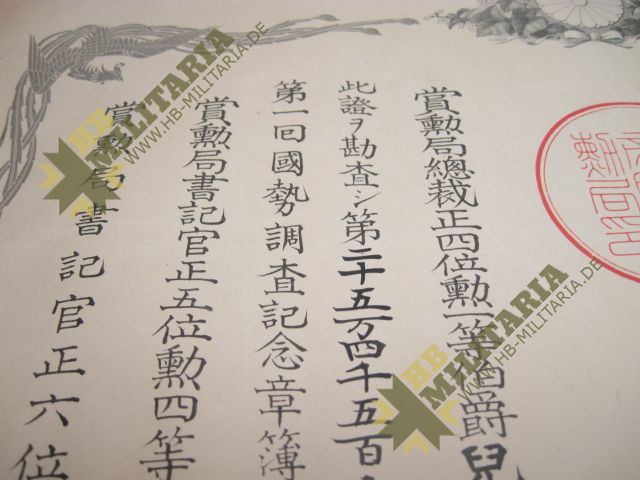 賞勲局總裁正四位勲一等伯爵兒
此證ヲ勘査シ第二十五万四千五百
第一回國勢調査記念章簿
賞勲局書記官正五位勲四等
賞勲局書記官正六位
HB-MILITARIA
WWW.HB-MILITARIA.DE
HB-MILITARIA
WWW.HB-MILITARIA.DE